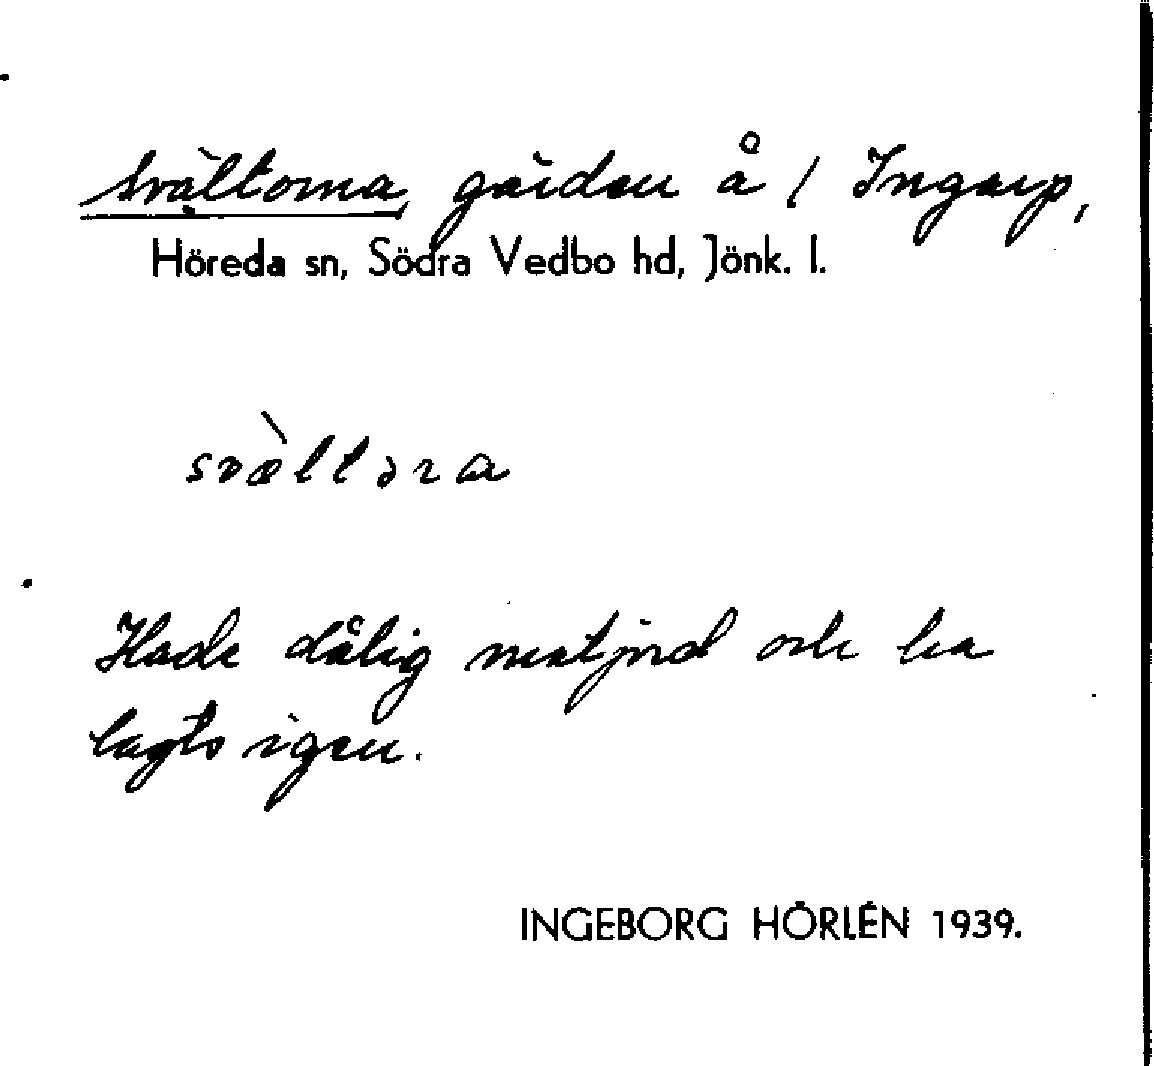 Svältorna, gärden å / Ingarp,
Höreda sn, Södra Vedbo hd, Jönk. l.
svæ̀ltəra
Hade dålig matjord och ha
lagts igen.
INGEBORG HÖRLÉN 1939.